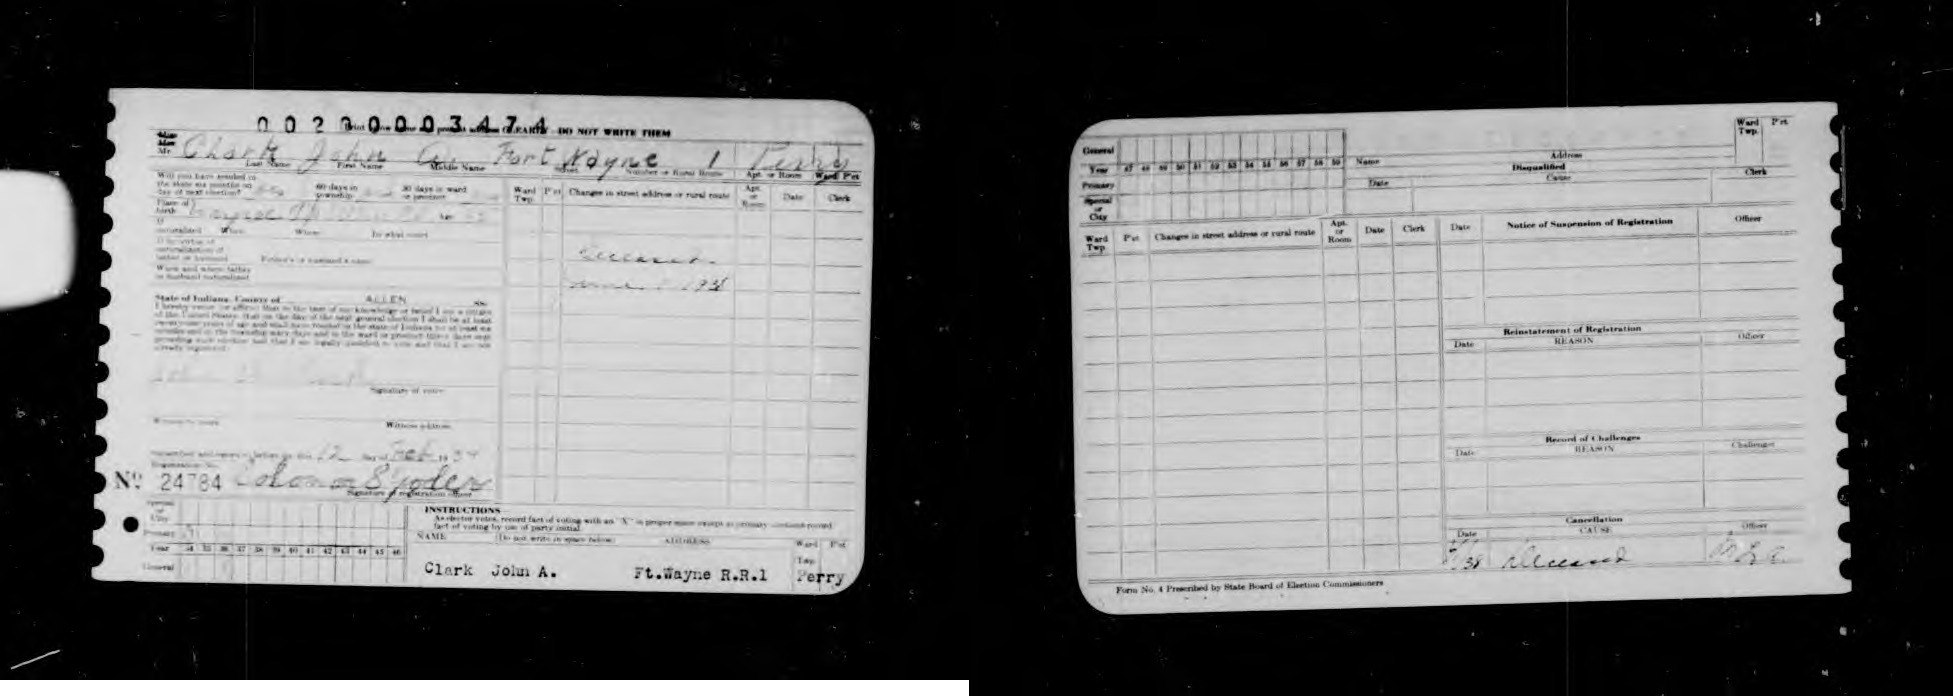 0020000003474
Print your name and present address CLEARLY - DO NOT WRITE THEM
Miss
Mrs.
Mr. Clark John A. Fort Wayne 1 Perry
Last Name First Name Middle Name Street Number or Rural Route Apt. or Room Ward P'ct
Will you have resided in
the state six months on
day of next election? 60 days in township 30 days in ward or precinct
Ward Twp. P'ct Changes in street address or rural route Apt. or Room Date Clerk
Place of birth
If naturalized When Where In what court
If by virtue of
naturalization of
father or husband Father's or husband's name
When and where father
or husband naturalized
deceased
1938
State of Indiana, County of ALLEN SS.
I hereby swear (or affirm) that to the best of my knowledge or belief I am a citizen
of the United States; that on the day of the next general election I shall be at least
twenty-one years of age and shall have resided in the state of Indiana for at least six
months and in the township sixty days and in the ward or precinct thirty days next
preceding such election and that I am legally qualified to vote and that I am not
already registered.
Signature of voter
Witness address
Subscribed and sworn to before me this 12 day of Feb 19 34
Registration No.
No 24784
Signature of registration officer
Special or City
Primary
Year 34 35 36 37 38 39 40 41 42 43 44 45 46
General
INSTRUCTIONS
As elector votes, record fact of voting with an "X" in proper space except at primary elections record
fact of voting by use of party initial.
NAME (Do not write in space below) ADDRESS Ward P'ct
Twp.
Clark John A. Ft.Wayne R.R.1 Perry
General
Year 47 48 49 50 51 52 53 54 55 56 57 58 59
Primary
Special or City
Name Address Ward Twp. P'ct
Disqualified
Date Cause Clerk
Ward Twp P'ct Changes in street address or rural route Apt. or Room Date Clerk
Date Notice of Suspension of Registration Officer
Reinstatement of Registration
Date REASON Officer
Record of Challenges
Date REASON Challenger
Cancellation
Date CAUSE Officer
38 Deceased
Form No. 4 Prescribed by State Board of Election Commissioners